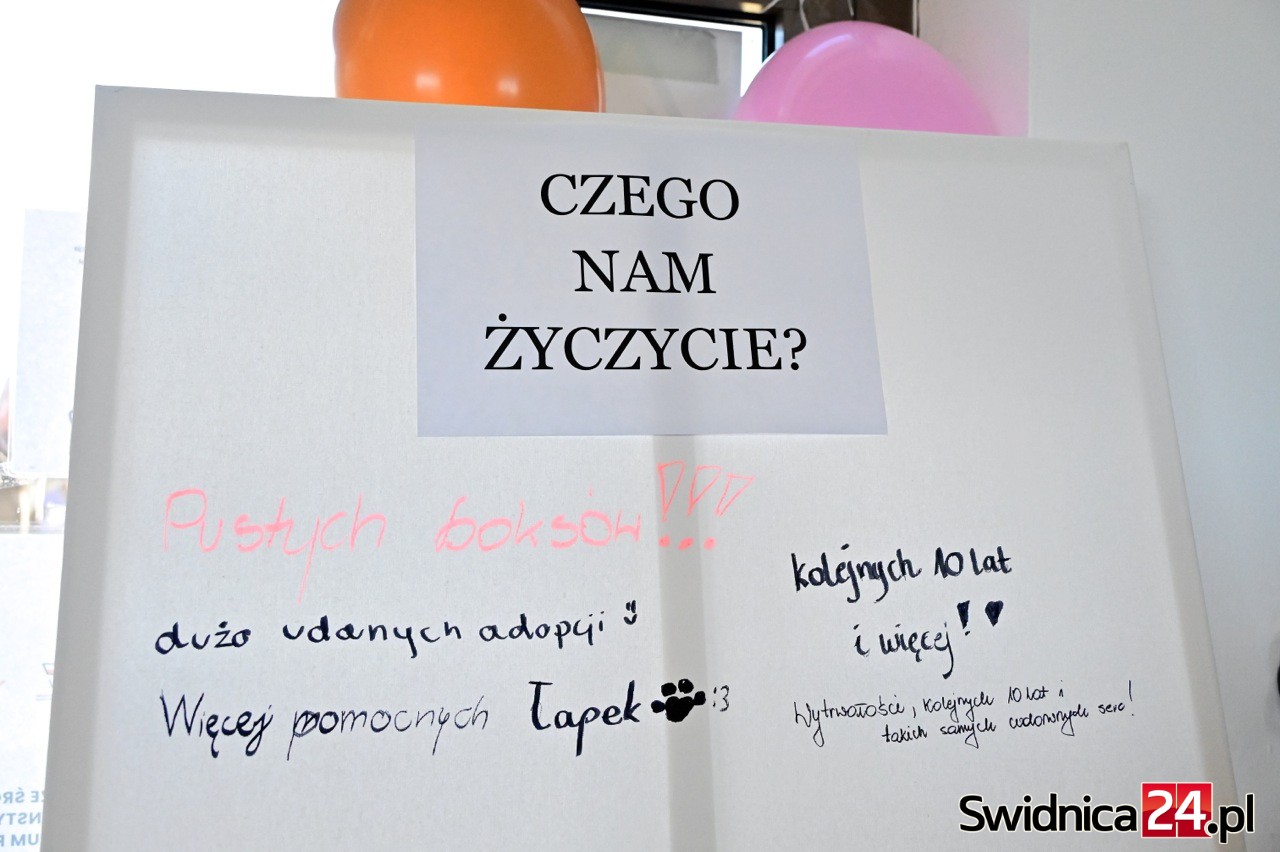 CZEGO
NAM
ŻYCZYCIE?
Pustych boksów!!!
dużo udanych adopcji
Więcej pomocnych łapek :3
kolejnych 10 lat
i więcej!
Wytrwałości, kolejnych 10 lat i
takich samych cudownych serc!
Swidnica24.pl